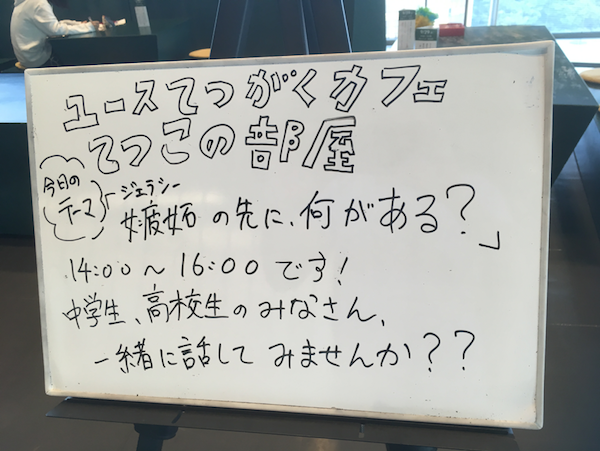 ユースてつがくカフェ
てつこの部屋
今日の
テーマ
ジェラシー
「嫉妬の先に、何がある?」
14:00～16:00です!
中学生、高校生のみなさん、
一緒に話してみませんか??